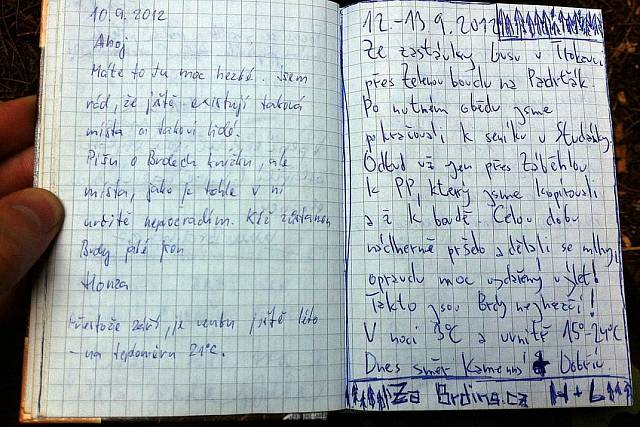 10.9.2012
Ahoj
Máte to tu moc hezké. Jsem
rád, že ještě existují taková
místa a takoví lidé.
Píšu o Brdech knížku, ale
místa, jako je tohle v ní
určitě nepořádám. Kéž zůstanou
Brdy jaké jsou
Honza
Přestože září, je venku ještě léto
- na teploměru 21°C.
12.-13.9.2012
Ze zastávky busu v Trokavci
přes Zelenou boudu na Padrťák.
Po nutném obědu jsme
pokračovali k seníku u Studánky.
Odtud už jen přes Záběhlou
k PP, který jsme kopírovali
až k boudě. Celou dobu
nádherně pršelo a dělali se mlhy,
opravdu moc vydařený výlet!
Takto jsou Brdy nejhezčí!
V noci 3°C a uvnitř 15°-24°C
Dnes směr Kamenná Dobřív
Za Brding.cz H + L